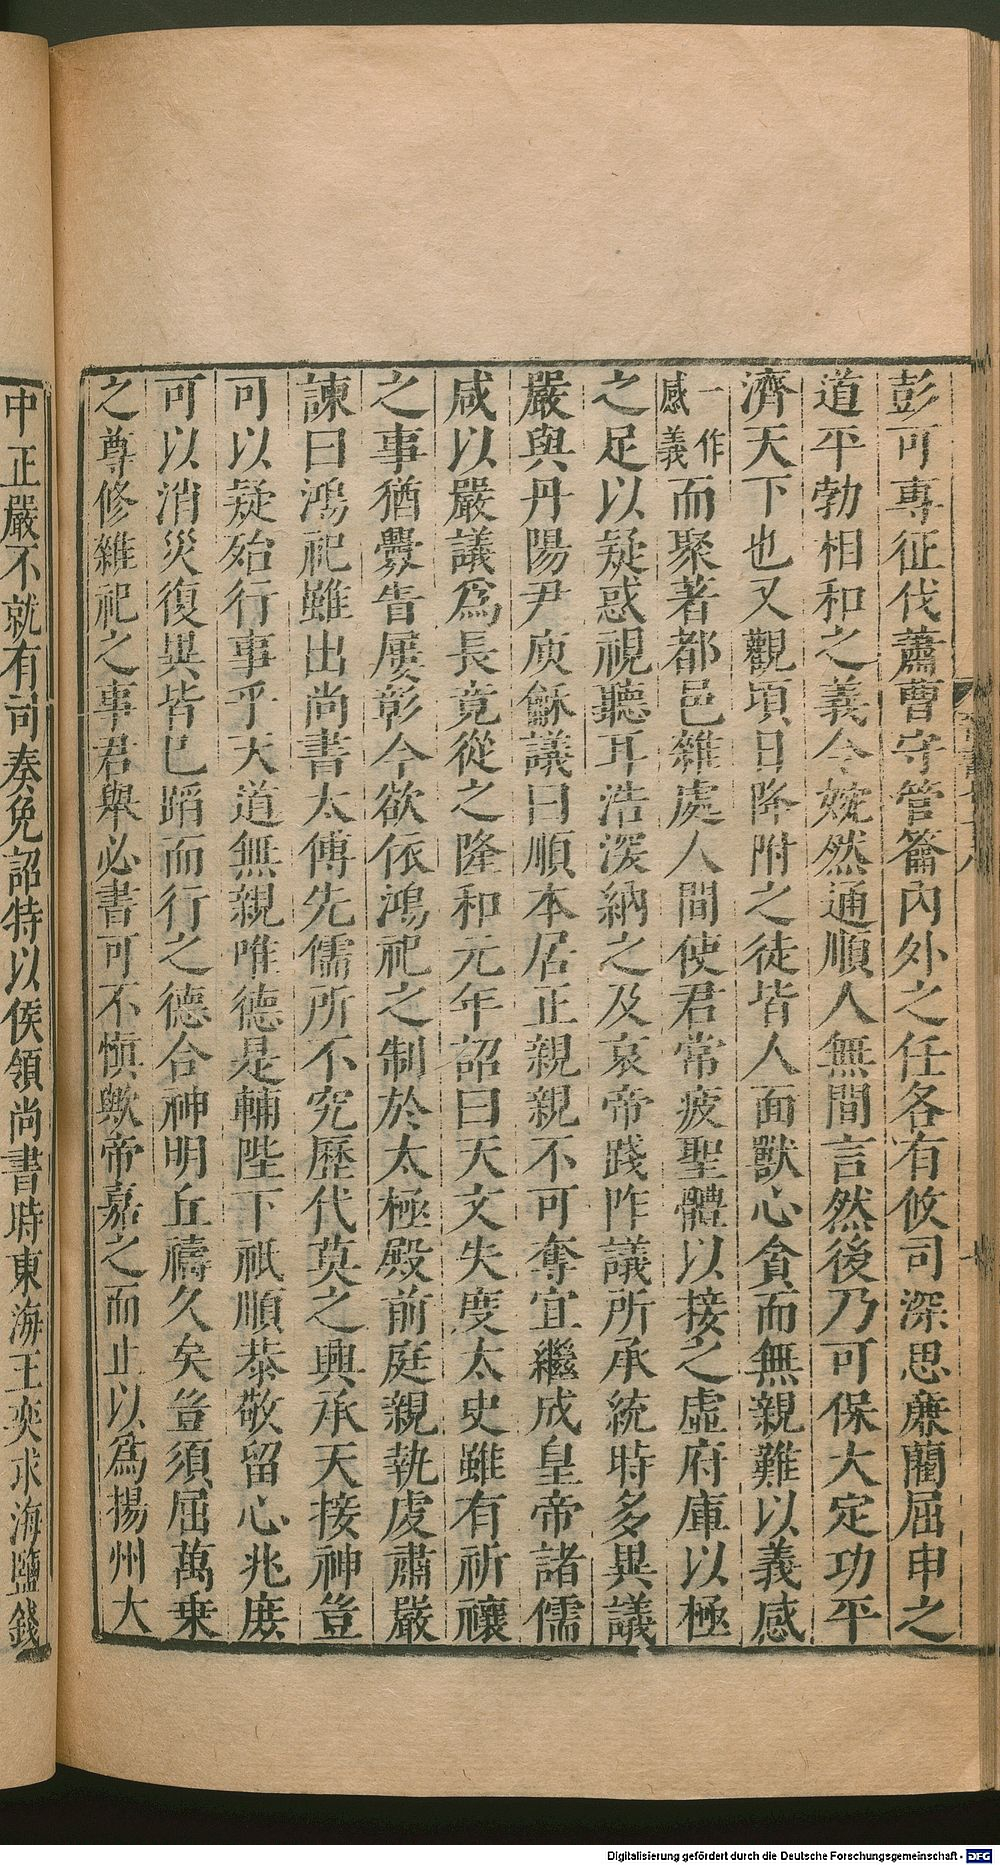 彭可專征伐蕭曹守管籥內外之任各有攸司深思廉藺屈申之
道平勃相和之義令婉然通順人無間言然後乃可保大定功平
濟天下也又觀頃日降附之徒皆人面獸心貪而無親難以義感
一作感義而聚著都邑雜處人間使君常疲聖體以接之虛府庫以極
之足以疑惑視聽耳浩深納之及哀帝踐阼議所承統時多異議
嚴與丹陽尹庾龢議曰順本居正親親不可奪宜繼成皇帝諸儒
咸以嚴議爲長竟從之隆和元年詔曰天文失度太史雖有祈禳
之事猶釁眚屢彰今欲依鴻祀之制於太極殿前庭親執虔肅嚴
諫曰鴻祀雖出尚書太傅先儒所不究歷代莫之興承天接神豈
可以疑殆行事乎天道無親唯德是輔陛下祇順恭敬留心兆庶
可以消災復異皆已蹈而行之德合神明丘禱久矣豈須屈萬乗
之尊修雜祀之事君舉必書可不愼歟帝嘉之而止以爲揚州大
中正嚴不就有司奏免詔特以侯領尚書時東海王奕求海鹽錢
Digitalisierung gefördert durch die Deutsche Forschungsgemeinschaft - DFG